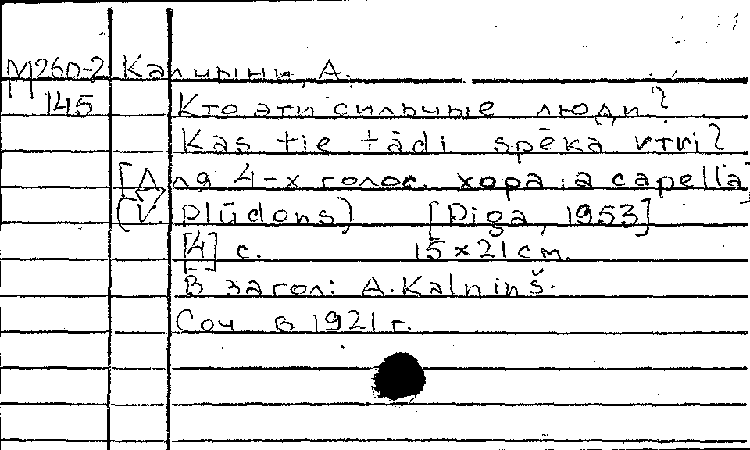 М260-2 Калниньш, А.
145 Кто эти сильные люди?
Kas tie tādi spēka vīri?
[Для 4-х голос. хора a capella]
(V. Plūdons) [Riga, 1953]
[4] с. 15х21 см.
В загол: A. Kalninš.
Соч в 1921 г.